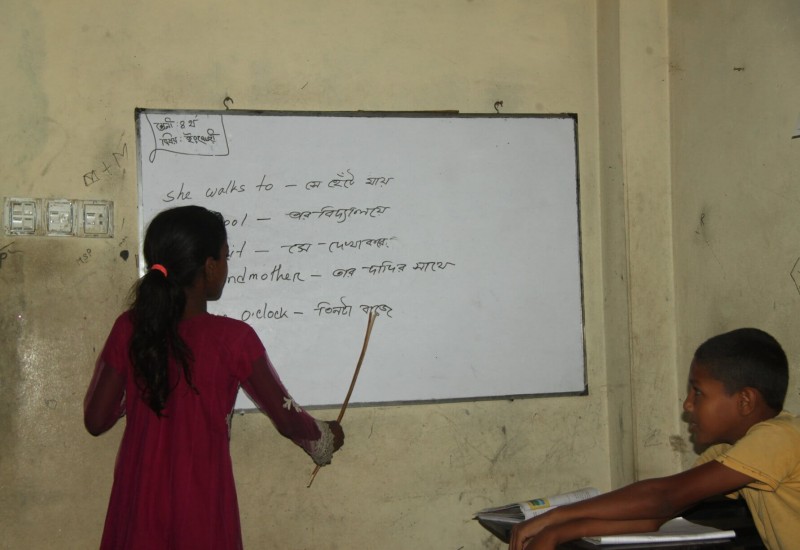 শ্রেনী : ৪থ
বিষয় : ইংরেজী
M + M
she walks to – সে হেঁটে যায়
ool – তার বিদ্যালয়ে
– সে – দেখা করে
ndmother – তার দাদির সাথে
o'clock – তিনটা বাজে